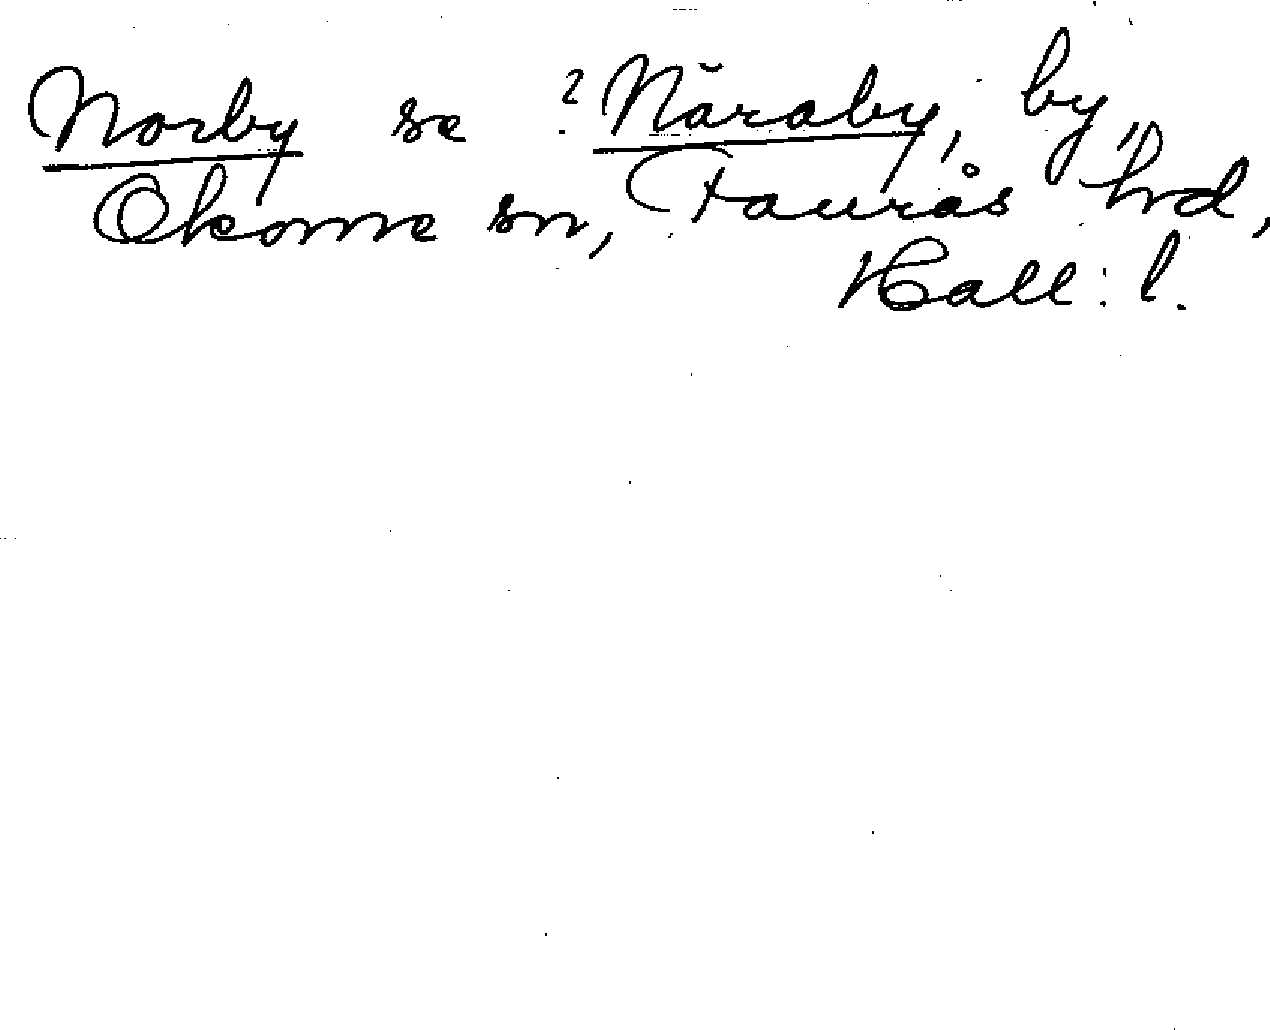 Norby se ? Năraby, by,
Okome sn, Faurås hrd,
Hall: l.